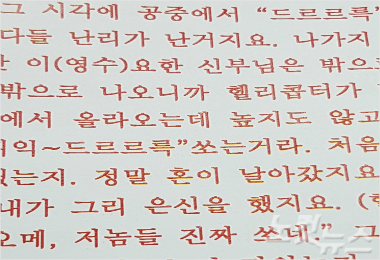 그 시각에 공중에서 “드르르륵”
다들 난리가 난거지요. 나가지
이(영수)요한 신부님은 밖으
밖으로 나오니까 헬리콥터가
에서 올라오는데 높지도 않고
~드르르륵”쏘는거라. 처음
는지. 정말 혼이 날아갔지요
내가 그리 은신을 했지요. (
오메, 저놈들 진짜 쏘네.” 그
노컷뉴스